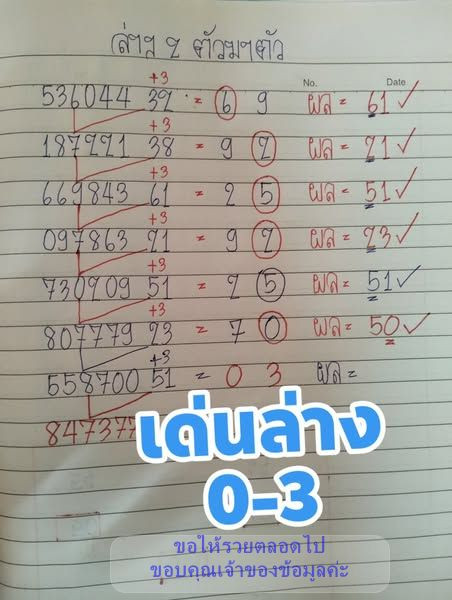 ล่าง 2 ตัวมา 1 ตัว
No. Date
+3
536044 32 = 6 9 ผล = 61 ✓
+3
187221 38 = 9 2 ผล = 21 ✓
+3
669843 61 = 2 5 ผล = 51 ✓
+3
097863 21 = 9 2 ผล = 23 ✓
+3
730209 51 = 2 5 ผล = 51 ✓
+3
807779 23 = 7 0 ผล = 50 ✓
+3
558700 51 = 0 3 ผล =
847377
เด่นล่าง
0-3
ขอให้รวยตลอดไป
ขอบคุณเจ้าของข้อมูลค่ะ